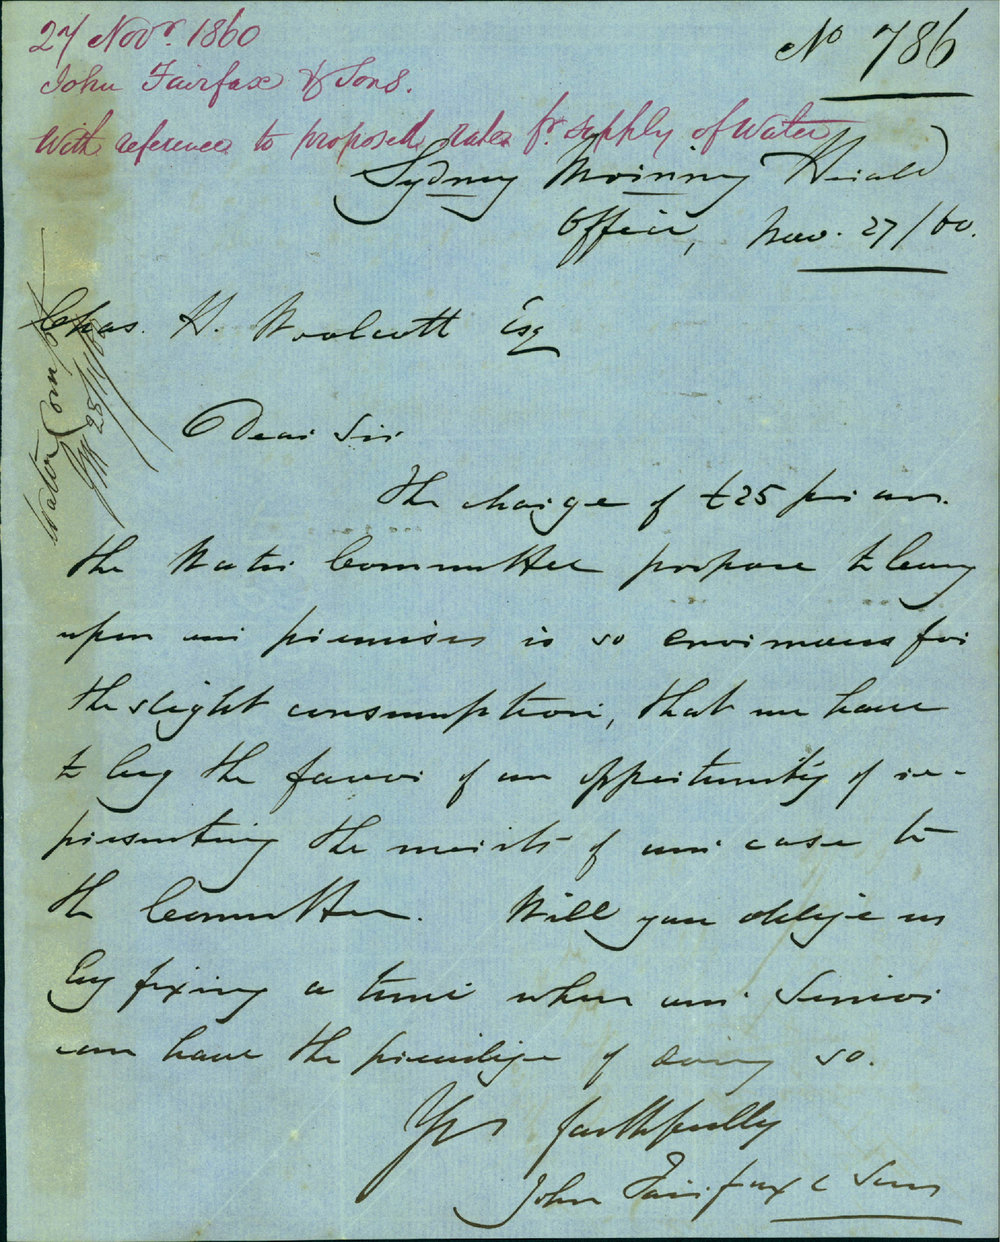 27 Novr. 1860
John Fairfax & Sons.
With reference to proposed rates fr. supply of Water
No 786
Sydney Morning Herald
Office, Nov. 27/60.
Chas. H. Woolcott Esq
Water Com
28/11/60
Dear Sir
The charge of £25 per ann.
the Water Committee propose to levy
upon our premises is so enormous for
the slight consumption, that we have
to beg the favor of an opportunity of re-
presenting the merits of our case to
the Committee. Will you oblige us
by fixing a time when our Senior
can have the privilege of doing so.
Yrs faithfully
John Fairfax & Sons